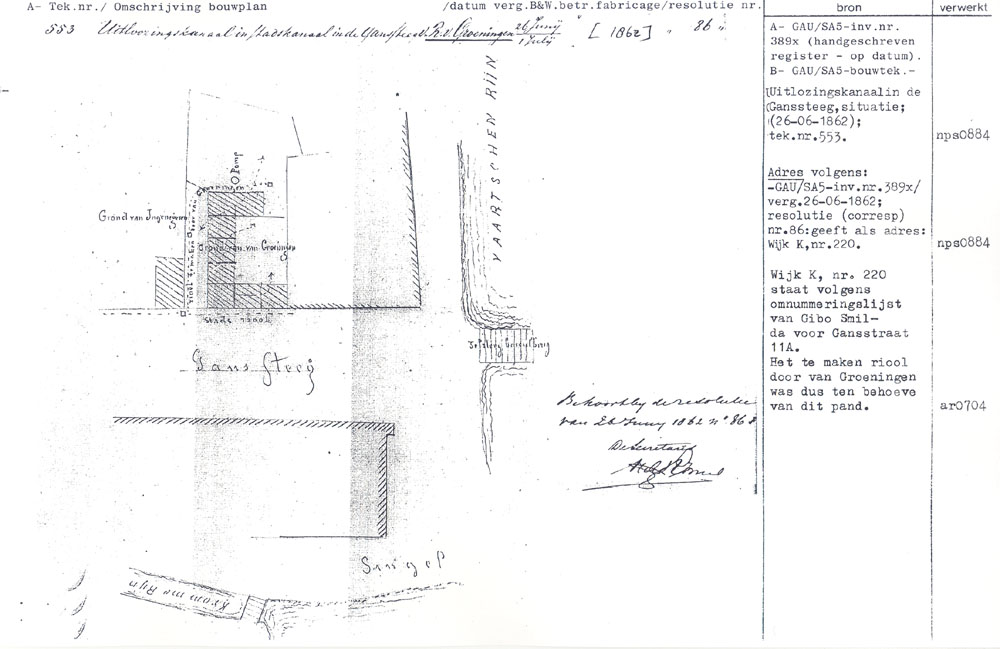 A- Tek.nr./ Omschrijving bouwplan /datum verg.B&W.betr.fabricage/resolutie nr. bron verwerkt
553 Uitlozingskanaal in Stadskanaal in de Gansstee v. R. v. Groeningen 26 Junij 1 Julij [1862] " 86
A- GAU/SA5-inv.nr.
389x (handgeschreven
register - op datum).
B- GAU/SA5-bouwtek.-
Uitlozingskanaalin de
Ganssteeg,situatie;
(26-06-1862);
tek.nr.553. nps0884
Adres volgens:
-GAU/SA5-inv.nr.389x/
verg.26-06-1862;
resolutie (corresp)
nr.86:geeft als adres:
Wijk K,nr.220. nps0884
Wijk K, nr. 220
staat volgens
omnummeringslijst
van Gibo Smil-
da voor Gansstraat
11A.
Het te maken riool
door van Groeningen
was dus ten behoeve
van dit pand. ar0704
VAARTSCHEN RIJN
Pomp
Grond van
Grond van van Groeningen
riool te maken door van Groeningen
stads riool
Gans Steeg
Behoort by de resolutie
van 26 Juny 1862 n° 86
De Secretaris
Singel
Kromme Rijn